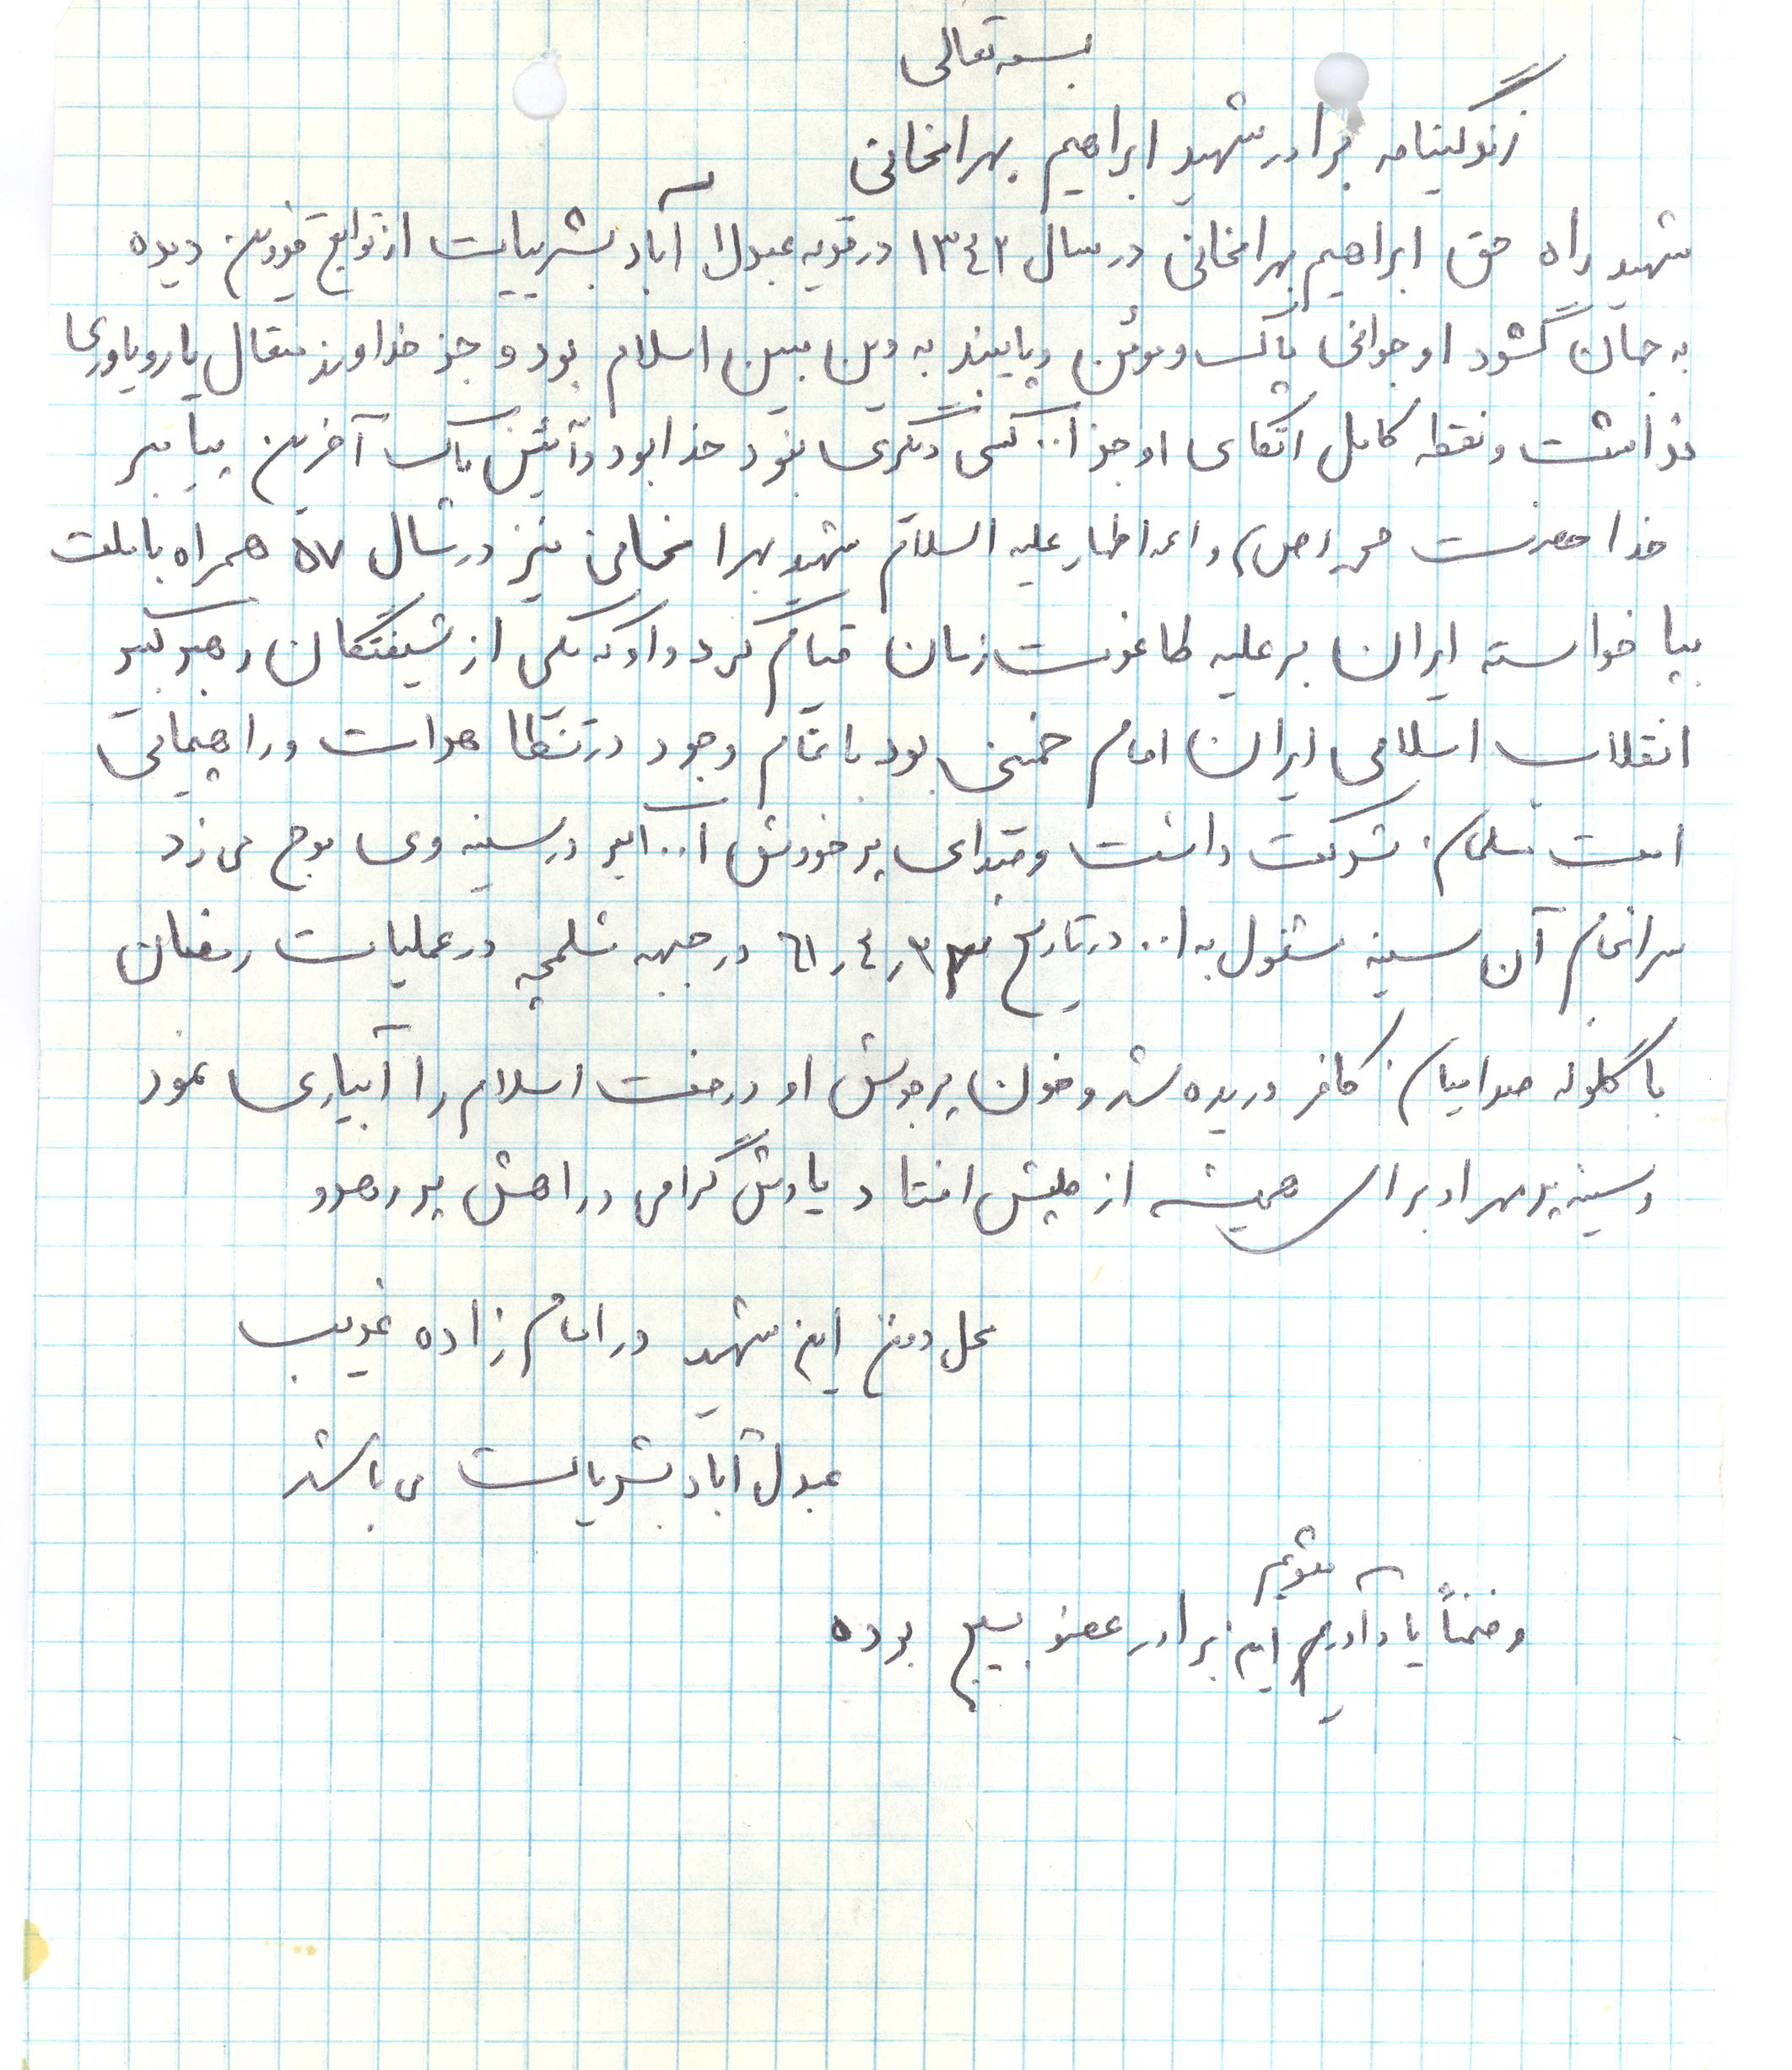 بسمه تعالی
زندگینامه برادر شهید ابراهیم بهرامخانی
شهید راه حق ابراهیم بهرامخانی در سال ۱۳۴۲ در قریه عبدل آباد بشریات از توابع قزوین دیده
به جهان گشود او جوانی پاک و مومن و پایبند به دین مبین اسلام بود و جز خداوند متعال یار و یاوری
نداشت و نقطه کامل اتکای او جز ا... کسی دیگری نبود خدا بود و آئین پاک آخرین پیامبر
خدا حضرت محمد (ص) و ائمه اطهار علیه السلام شهید بهرامخانی نیز در سال ۵۷ همراه با ملت
بپا خواسته ایران بر علیه طاغوت زمان قیام کرد و او که یکی از شیفتگان رهبر کبیر
انقلاب اسلامی ایران امام خمینی بود با تمام وجود در تظاهرات و راهپیمائی
امت مسلمان شرکت داشت و صدای پر خروش ا... اکبر در سینه وی موج می زد
سرانجام آن سینه مشغول به ا... در تاریخ ۶۱٫۴٫۳ در جبهه شلمچه در عملیات رمضان
با گلوله صدامیان کافر دریده شد و خون پر جوش او درخت اسلام را آبیاری نمود
و سینه پر مهر او برای همیشه از طپش افتاد یادش گرامی و راهش پر رهرو
محل دفن این شهید در امام زاده غریب
عبدل آباد بشریات می باشد
و ضمناً یاد آور میشویم این برادر عضو بسیج بوده